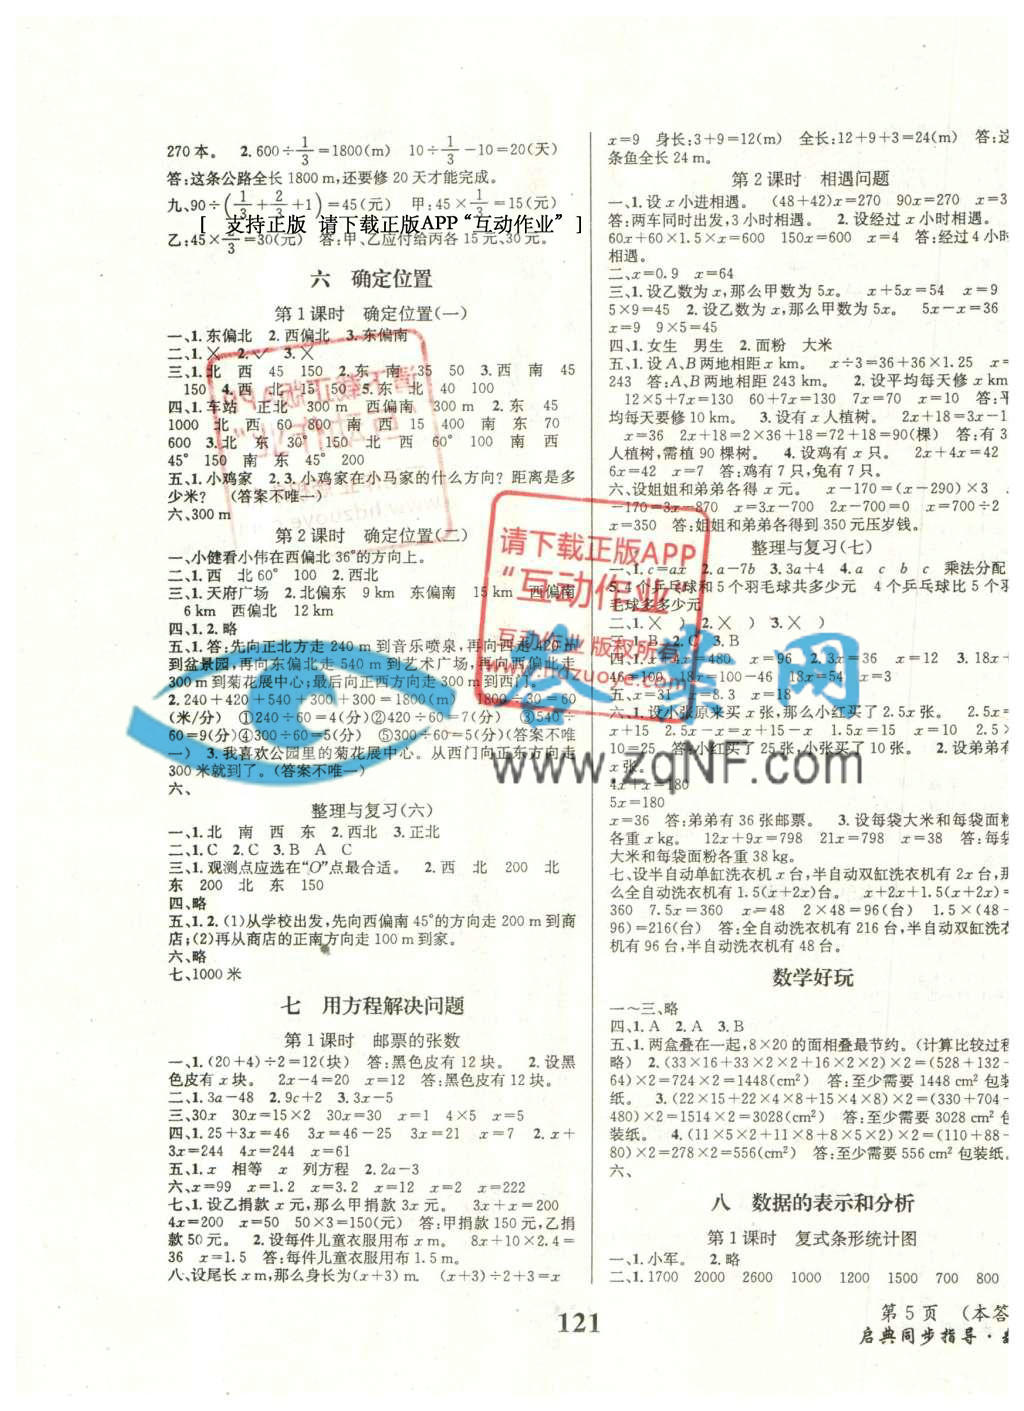 270本。 2.600÷1/3=1800(m) 10÷1/3-10=20(天)
答:这条公路全长1800 m,还要修20天才能完成。
九、90÷(1/3+2/3+1)=45(元) 甲:45×1/3=15(元)
[ 支持正版 请下载正版APP“互动作业” ]
乙:45×2/3=30(元) 答:甲、乙应付给丙各15元、30元。
六 确定位置
第1课时 确定位置(一)
一、1.东偏北 2.西偏北 3.东偏南
二、1.× 2.✓ 3.×
三、1.北 西 45 150 2.东 南 35 50 3.西 南 45
150 4.西 北 15 50 5.东 北 40 100
四、1.车站 正北 300 m 西偏南 300 m 2.东 45
1000 北 西 60 800 南 西 15 400 南 东 70
600 3.北 东 30° 150 北 西 60° 100 南 西
45° 150 南 东 45° 200
五、1.小鸡家 2.小鸡家在小马家的什么方向?距离是多
少米? (答案不唯一)
六、300 m
第2课时 确定位置(二)
一、小健看小伟在西偏北36°的方向上。
二、1.西 北60° 100 2.西北
三、1.天府广场 2.北偏东 9 km 东偏南 15 km 西偏南
6 km 西偏北 12 km
四、1.2.略
五、1.答:先向正北方走240 m到音乐喷泉,再向西走420 m
到盆景园,再向东偏北走540 m到艺术广场,再向西偏北走
300 m到菊花展中心;最后向正西方向走300 m到西门。
2.240+420+540+300+300=1800(m) 1800÷30=60
(米/分) ①240÷60=4(分)②420÷60=7(分) ③540÷
60=9(分)④300÷60=5(分) ⑤300÷60=5(分)(答案不唯
一) 3.我喜欢公园里的菊花展中心。从西门向正东方向走
300米就到了。(答案不唯一)
六、
整理与复习(六)
一、1.北 南 西 东 2.西北 3.正北
二、1.C 2.C 3.B A C
三、1.观测点应选在“O”点最合适。 2.西 北 200 北
东 200 北 东 150
四、略
五、1.2.(1)从学校出发,先向西偏南45°的方向走200 m到商
店;(2)再从商店的正南方向走100 m到家。
六、略
七、1000米
七 用方程解决问题
第1课时 邮票的张数
一、1.(20+4)÷2=12(块) 答:黑色皮有12块。 2.设黑
色皮有x块。 2x-4=20 x=12 答:黑色皮有12块。
二、1.3a-48 2.9c+2 3.3x-5
三、30x 30x=15×2 30x=30 x=1 4×5 x=5
四、1.25+3x=46 3x=46-25 3x=21 x=7 2.x+
3x=244 4x=244 x=61
五、1.x 相等 x 列方程 2.2a-3
六、x=99 x=1.2 x=3.2 x=12 x=2 x=222
七、1.设乙捐款x元,那么甲捐款3x元。 3x+x=200
4x=200 x=50 50×3=150(元) 答:甲捐款150元,乙捐
款50元。 2.设每件儿童衣服用布x m。 8x+10×2.4=
36 x=1.5 答:每件儿童衣服用布1.5 m。
八、设尾长x m,那么身长为(x+3) m. (x+3)÷2+3=x
x=9 身长:3+9=12(m) 全长:12+9+3=24(m) 答:这
条鱼全长24 m。
第2课时 相遇问题
一、1.设x小进相遇。 (48+42)x=270 90x=270 x=3
答:两车同时出发,3小时相遇。 2.设经过x小时相遇。
60x+60×1.5×x=600 150x=600 x=4 答:经过4小时
相遇。
二、x=0.9 x=64
三、1.设乙数为x,那么甲数为5x。 x+5x=54 x=9
5×9=45 2.设乙数为x,那么甲数为5x。 5x-x=36
x=9 9×5=45
四、1.女生 男生 2.面粉 大米
五、1.设A、B两地相距x km。 x÷3=36+36×1.25 x=
243 答:A、B两地相距243 km。 2.设平均每天修x km
12×5+7x=130 60+7x=130 7x=70 x=10 答:平
均每天要修10 km。 3.设育才有x人植树。 2x+18=3x-1
x=36 2x+18=2×36+18=72+18=90(棵) 答:有3
人植树,需植90棵树。 4.设鸡有x只。 2x+4x=42
6x=42 x=7 答:鸡有7只,兔有7只。
六、设姐姐和弟弟各得x元。 x-170=(x-290)×3 x
-170=3x-870 3x-2x=870-170
x=350 答:姐姐和弟弟各得到350元压岁钱。
整理与复习(七)
一、1.c=ax 2.a-7b 3.3a+4 4.a c b c 乘法分配
5.4个乒乓球和5个羽毛球共多少元 4个乒乓球比5个羽
毛球多多少元
二、1.× 2.× 3.×
三、1.B 2.C 3.B
四、1.x+4x=480 x=96 2.3x=36 x=12 3.18x+
46=100 18x=100-46 18x=54 x=3
五、x=31 x=8.3 x=18
六、1.设小张原来买x张,那么小红买了2.5x张。
x+15 2.5x-x=x+15-x 1.5x=15 x=10 2.5×
10=25 答:小红买了25张,小张买了10张。 2.设弟弟有
x张。
4x+x=180
5x=180
x=36 答:弟弟有36张邮票。 3.设每袋大米和每袋面粉
各重x kg。 12x+9x=798 21x=798 x=38 答:每袋
大米和每袋面粉各重38 kg。
七、设半自动单缸洗衣机x台,半自动双缸洗衣机有2x台,那
么全自动洗衣机有1.5(x+2x)台。 x+2x+1.5(x+2x)=
360 7.5x=360 x=48 2×48=96(台) 1.5×(48+
96)=216(台) 答:全自动洗衣机有216台,半自动双缸洗衣
机有96台,半自动洗衣机有48台。
数学好玩
一~三、略
四、1.A 2.A 3.B
五、1.两盒叠在一起,8×20的面相叠最节约。(计算比较过程
略) 2.(33×16+33×2×2+16×2×2)×2=(528+132+
64)×2=724×2=1448(cm²) 答:至少需要1448 cm²包装
纸。 3.(22×15+22×4×8+15×4×8)×2=(330+704+
480)×2=1514×2=3028(cm²) 答:至少需要3028 cm²包
装纸。 4.(11×5×2+11×8+5×8×2)×2=(110+88+
80)×2=278×2=556(cm²) 答:至少需要556 cm²包装纸。
六、
八 数据的表示和分析
第1课时 复式条形统计图
一、1.小军。 2.略
二、1.1700 2000 2600 1000 1200 1500 700 800
121
第5页 (本答
启典同步指导·
请下载正版APP
“互动作业”
互动作业 版权所有
www.hdzuoye.com
答案网
www.zqNF.com